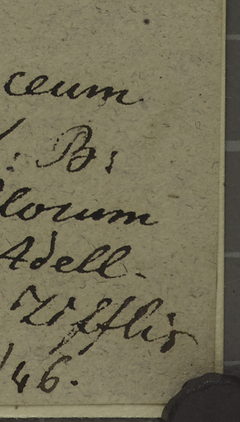 ceum
B:
lorum
Adell.
Tifflis
/46.